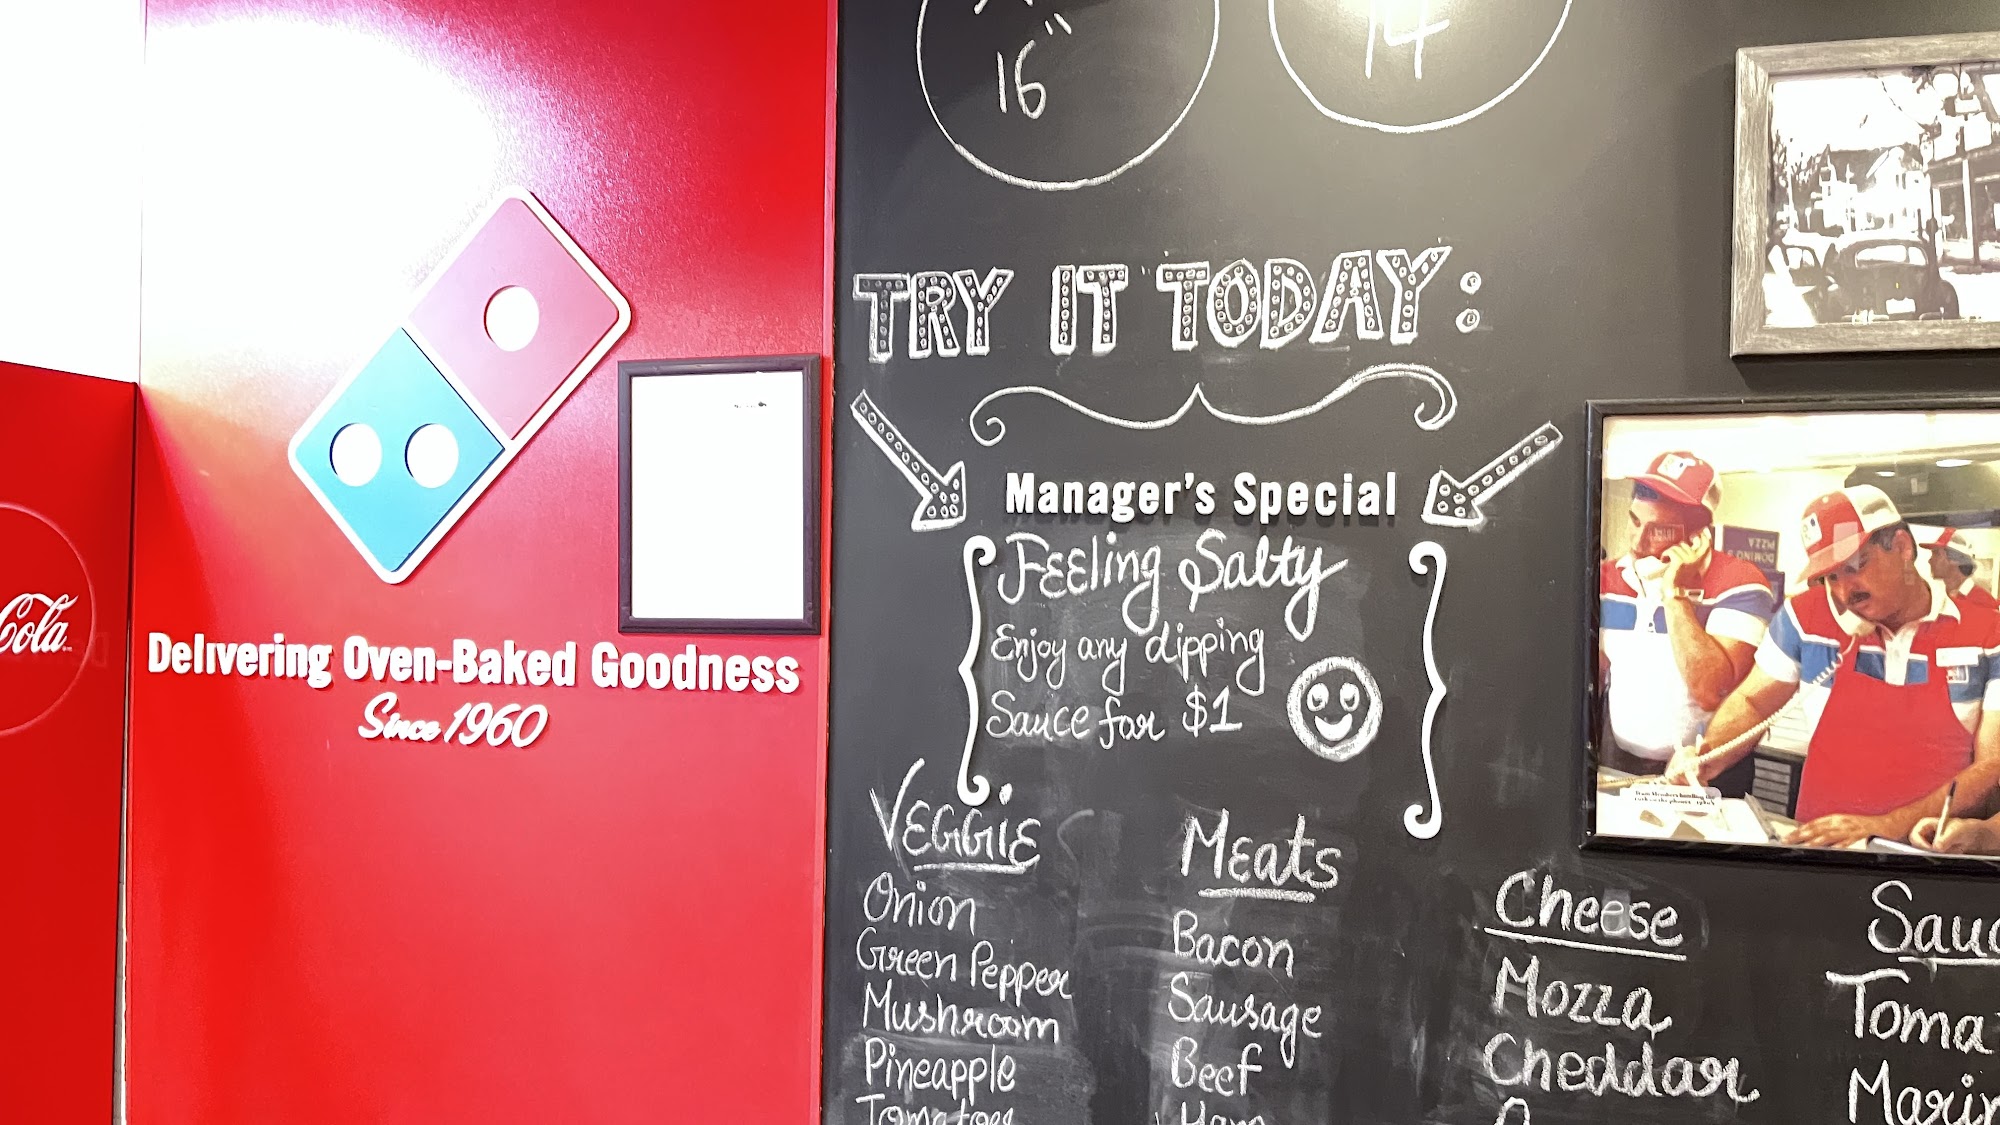 16"
14
TRY IT TODAY:
Manager's Special
Feeling Salty
Enjoy any dipping
Sauce for $1
Delivering Oven-Baked Goodness
Since 1960
Cola
DOMINO'S
PIZZA
VEGGIE
Onion
Green Pepper
Mushroom
Pineapple
Tomatoes
Meats
Bacon
Sausage
Beef
Ham
Cheese
Mozza
Cheddar
Sauc
Toma
Marin